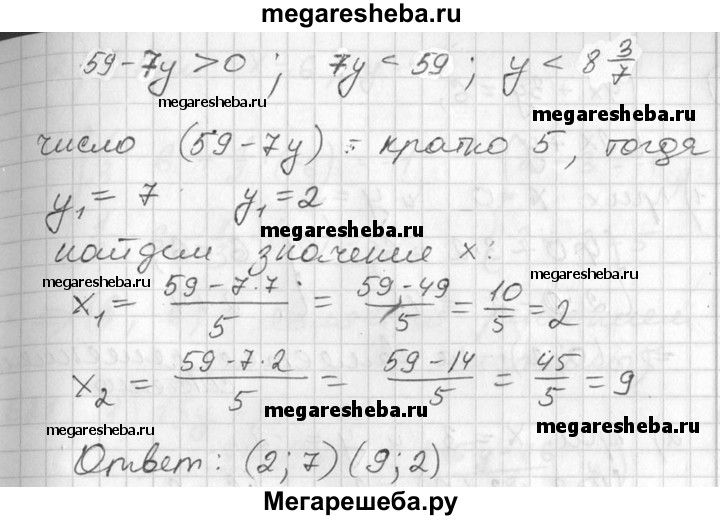 megaresheba.ru
59-7y>0; 7y<59; y<8 3/7
megaresheba.ru
megaresheba.ru
число (59-7y) - кратно 5, тогда
y₁=7 y₁=2
megaresheba.ru
найдем значение x:
megaresheba.ru
megaresheba.ru
x₁ = (59-7·7)/5 = (59-49)/5 = 10/5 = 2
x₂ = (59-7·2)/5 = (59-14)/5 = 45/5 = 9
megaresheba.ru
megaresheba.ru
megaresheba.ru
Ответ: (2;7) (9;2)
Мегарешеба.ру